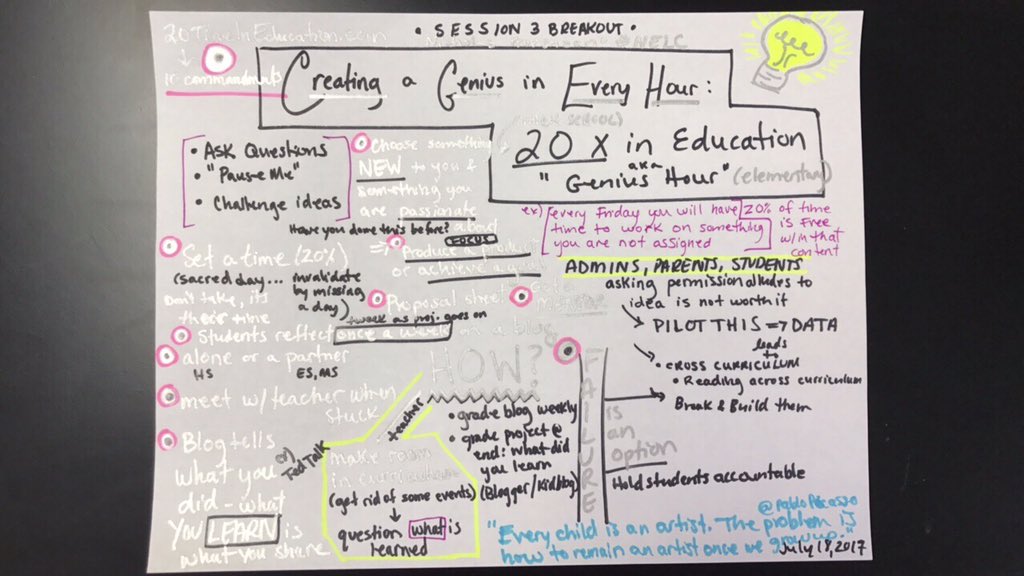 • SESSION 3 BREAKOUT •
20TimeInEducation.com
NELC
10 commandments
Creating a Genius in Every Hour:
20 X in Education
aka
"Genius Hour" (elementary)
• Ask Questions
• "Pause Me"
• Challenge ideas
Choose something
NEW to you &
something you
are passionate
about
Have you done this before?
FOCUS
ex) every Friday you will have 20% of time
time to work on something is free
you are not assigned w/in that
content
Set a time (20%)
(sacred day... invalidate
by missing
a day)
Don't take, it's
their time
=> Produce a product
or achieve a
Proposal sheet
tweak as proj. goes on
Students reflect once a week on a blog
alone or a partner
HS ES, MS
meet w/ teacher when
stuck
Blog tells
what you
did - what
you LEARN is
what you share
or Ted Talk
ADMINS, PARENTS, STUDENTS
asking permission
idea is not worth it
PILOT THIS => DATA
leads
to
• CROSS CURRICULUM
• Reading across curriculum
Break & Build them
Hold students accountable
HOW?
teacher
make room
in curriculum
(get rid of some events)
question what is
learned
• grade blog weekly
• grade project @
end: what did
you learn
(Blogger/Kidblog)
FAILURE
is
an
option
@PabloPicasso
"Every child is an artist. The problem is
how to remain an artist once we grow up."
July 18, 2017